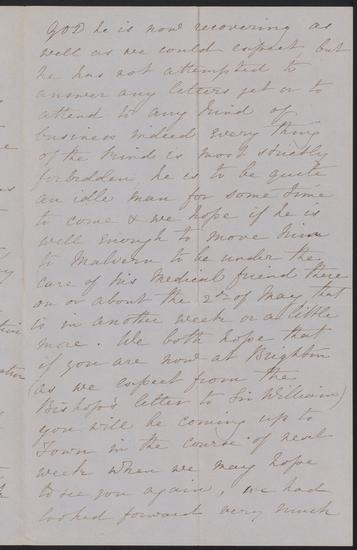 GOD he is now recovering as
well as we could expect but
he has not attempted to
answer any letters yet or to
attend to any kind of
business indeed every thing
of the kind is most strictly
forbidden he is to be quite
an idle man for some time
to come & we hope if he is
well enough to move him
to Malvern to be under the
care of his Medical friend there
on or about the 2nd of May that
is in another week or a little
more. We both hope that
if you are now at Brighton
(as we expect from the
Bishop's letter to Sir William)
you will be coming up to
Town in the course of next
week when we may hope
to see you again, we had
looked forward very much